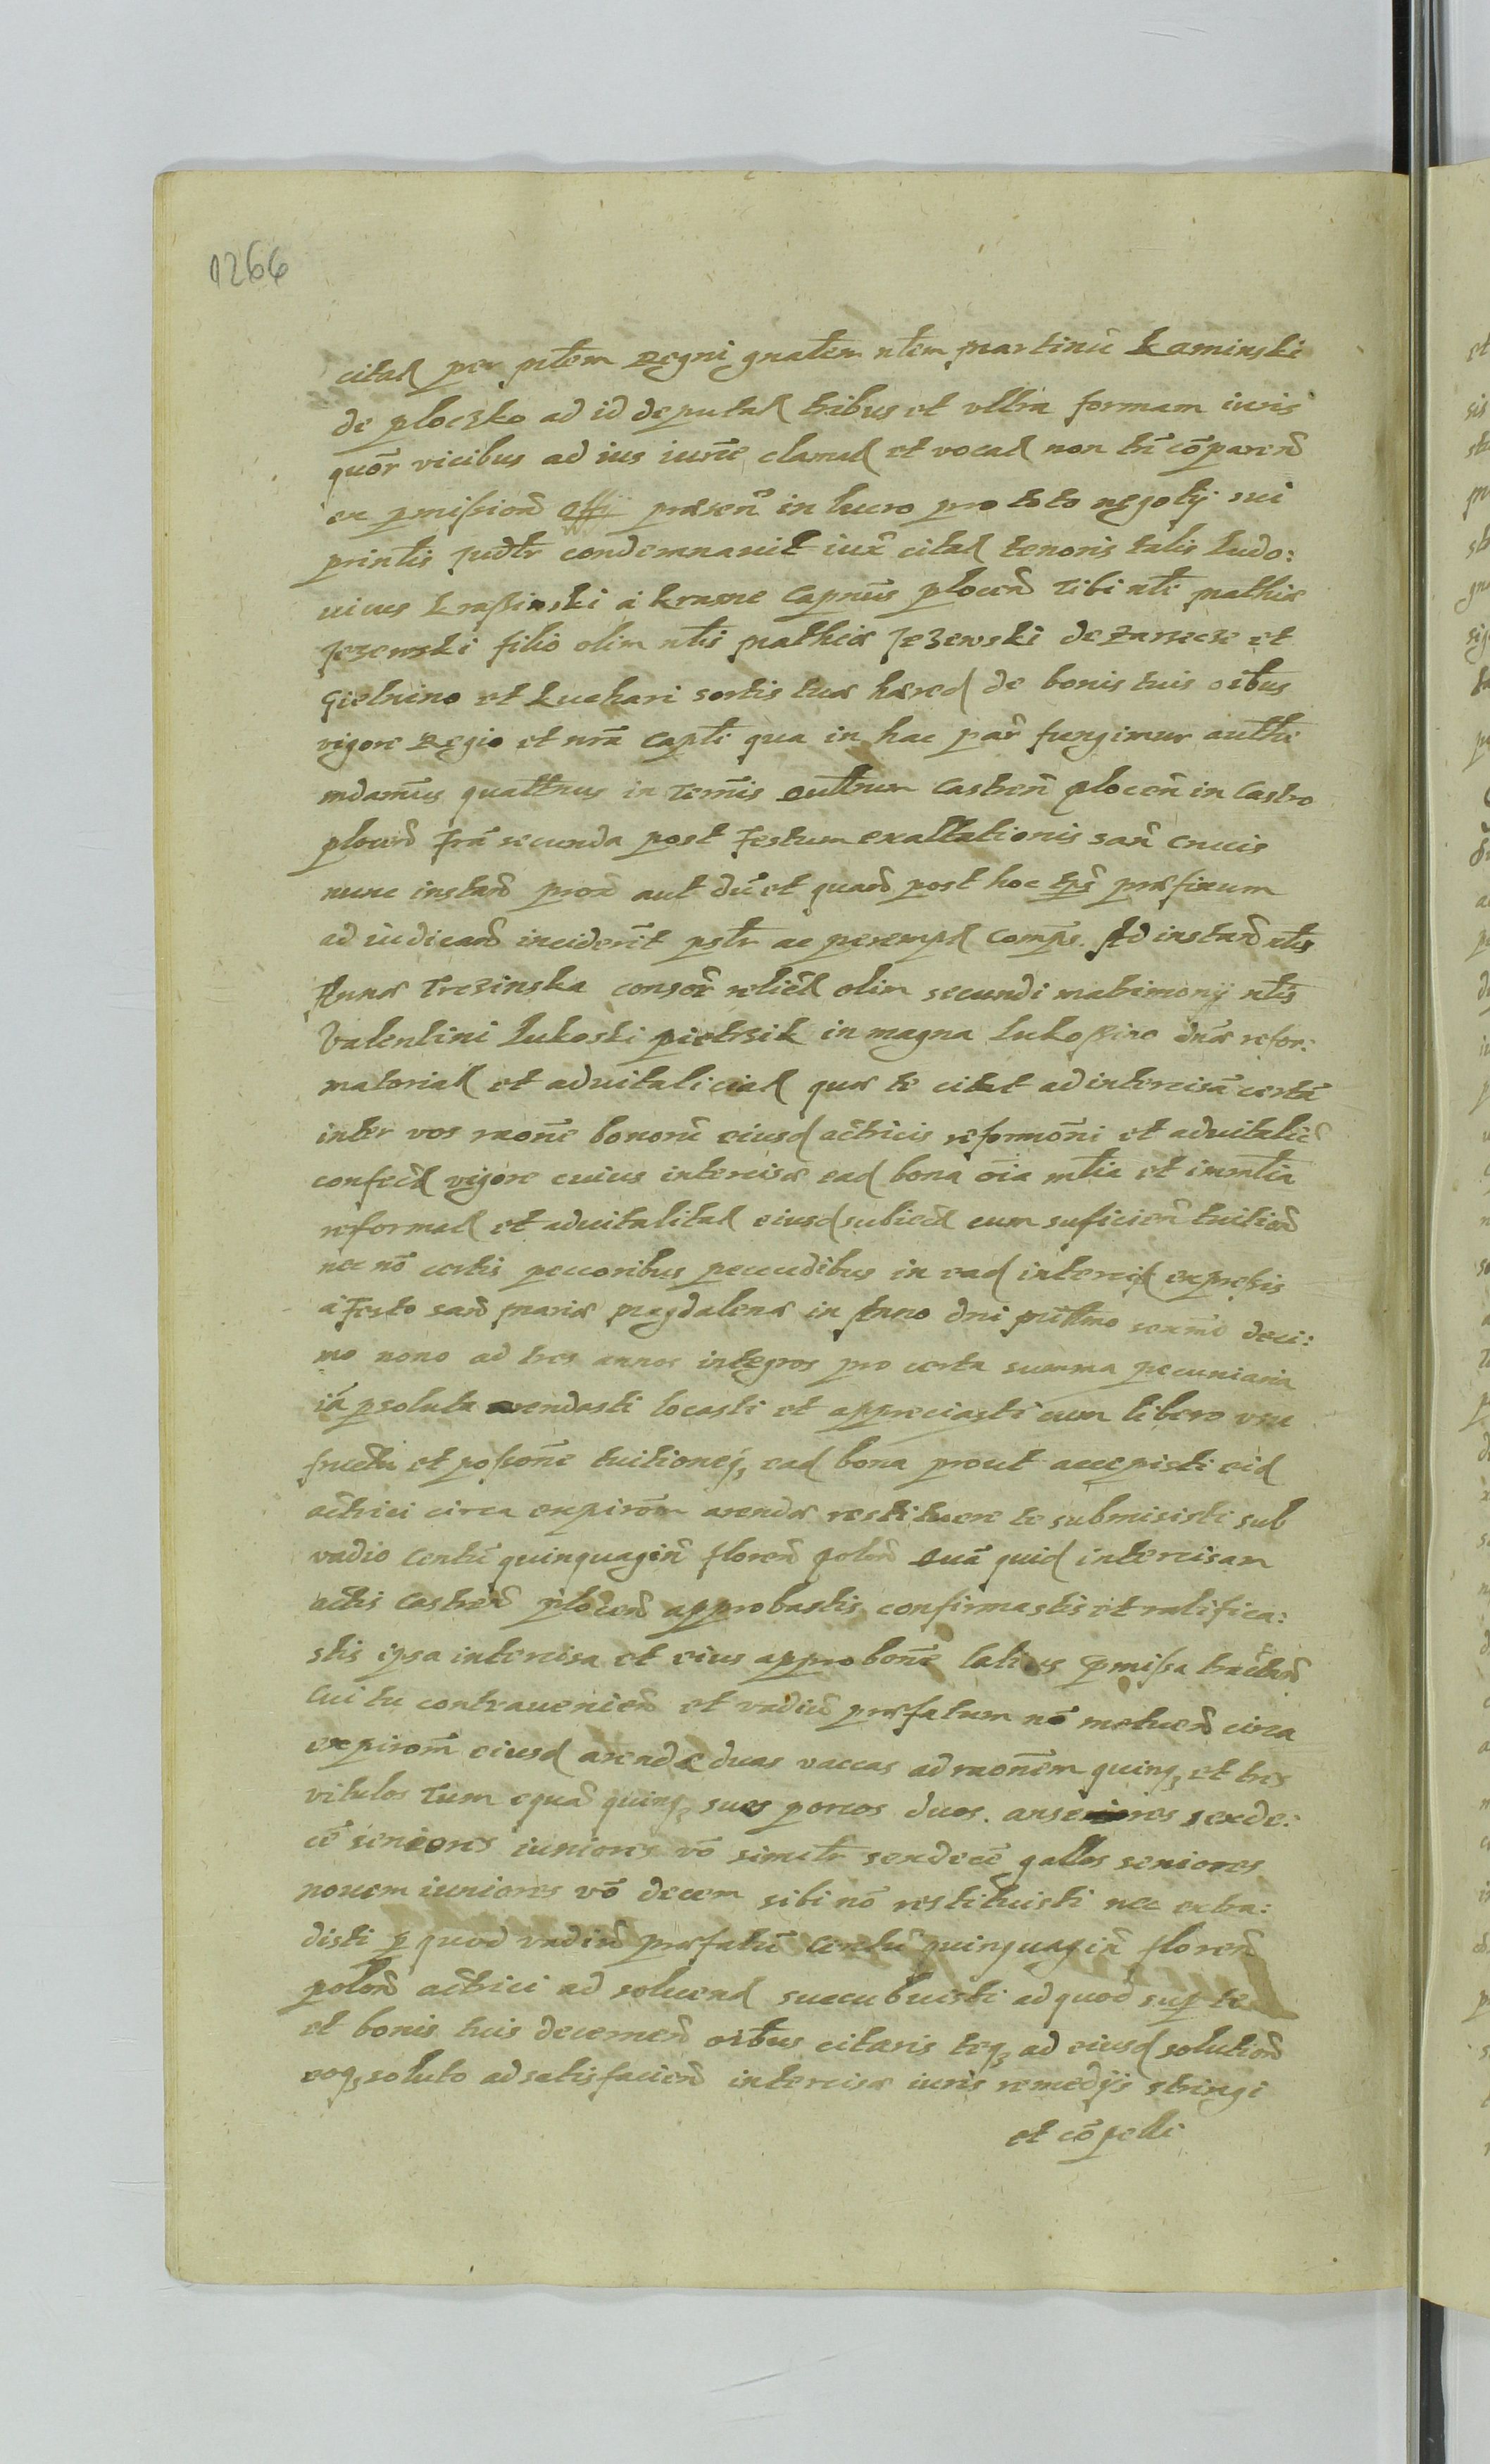 1266
citad per ptem Regni gnalem nlem Martinū Kaminski
de Ploczko ad id deputad tribus et ultra formam iuris
quōr vicibus ad ius iurne clamad et vocad non tn cōparen
ex pmission offi præsen in lucro pro toto negotÿ sui
printis Judtr condemnavit iux citad tenoris talis Ludo:
vicus Krassinski à Krasne Capneus Plocen Tibi nli Mathiæ
Jezewski filio olim nlis Mathiæ Jezewski de Zarzecze et
Gielnino et Kuchari sortis tuæ hæred de bonis tuis oibus
vigore Regio et nrā Capli qua in hac par fungimur authe
mdamus quattnus in Termis Quttrum Castren Plocen in Castro
Plocen Fra secunda post Festum exaltationis San Crucis
nunc instan prox aut dū et quan post hoc tps præfixum
ad iudican inciderit pstr ac peremp Compēs. Ad instan nlis
Annæ Trczinska consor relictæ olim secundi matrimonÿ nlis
Valentini Lukoski Pietrzik in magna Lukossino dnæ refor:
matoriad et advitaliciad quæ te citat ad intercisā certā
inter vos raone bonorū eiusd actricis reformōni et advitalic
confectæ vigore cuius intercisæ ead bona oia mlia et immlia
reformad et advitalitad eiusd subiect cum suficien tuition
nec nō certis peccoribus peccudibus in ead intercis expressis
à Festo San Mariæ Magdalenæ in Anno dni millmo sexmo deci:
mo nono ad tres annos integros pro certa summa pecuniaria
iā psoluta arendasti locasti et appreciasti cum libero usu
fructu et possone tuitioneq, ead bona prout accepisti eid
actrici circa expirom arendæ restituere te submisisti sub
vadio Centū quinquagin floren polon Quā quid intercisam
actis Castren Plocen approbastis confirmastis et ratifica:
stis ipsa intercisa et eius approbone latius pmissa tractan
Cui tu contravenien et vadiū præfatum nō metuen circa
expirom eiusd arendæ duas vaccas ad raonem quinq, et tres
vitulos Tum equā quinq, sues porcos duos. anseres sexde:
cē seniores iuniores vō similr sexdecē gallos seniores
novem iuniores vō decem sibi nō restituisti nec extra:
disti p quod vadiū præfatū Centū quinquagin floren
polon actrici ad solvend succubuisti ad quod sup te
et bonis tuis decernen oibus citaris teq, ad eiusd solution
eoq, soluto ad satisfacien intercisæ iuris remedÿs stringi
et cōpelli